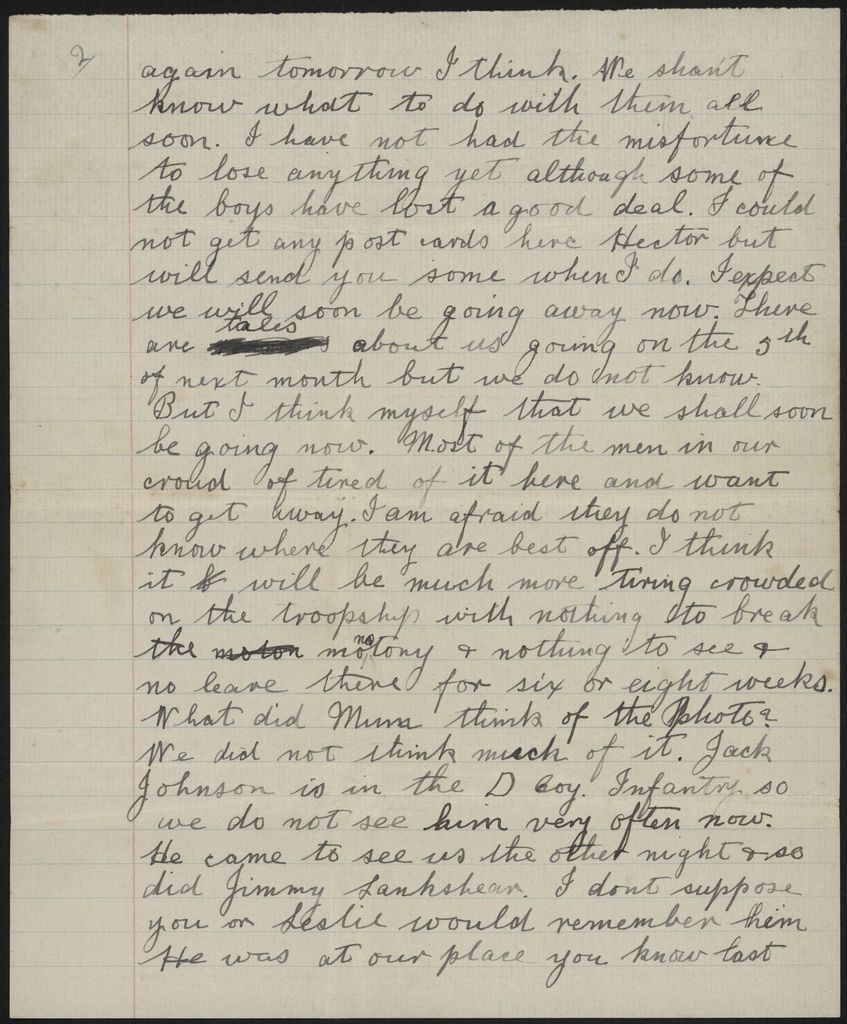 2
again tomorrow I think. We shan't
know what to do with them all
soon. I have not had the misfortune
to lose anything yet although some of
the boys have lost a good deal. I could
not get any post cards here Hector but
will send you some when I do. I expect
we will soon be going away now. There
are tales about us going on the 5th
of next month but we do not know.
But I think myself that we shall soon
be going now. Most of the men in our
croud of tired of it here and want
to get away. I am afraid they do not
know where they are best off. I think
it will be much more tiring crowded
on the troopship with nothing to break
the moton monotony & nothing to see &
no leave there for six or eight weeks.
What did Mum think of the Photo?
We did not think much of it. Jack
Johnson is in the D Coy. Infantry so
we do not see him very often now.
He came to see us the other night & so
did Jimmy Lankshear. I dont suppose
you or Leslie would remember him
He was at our place you know last